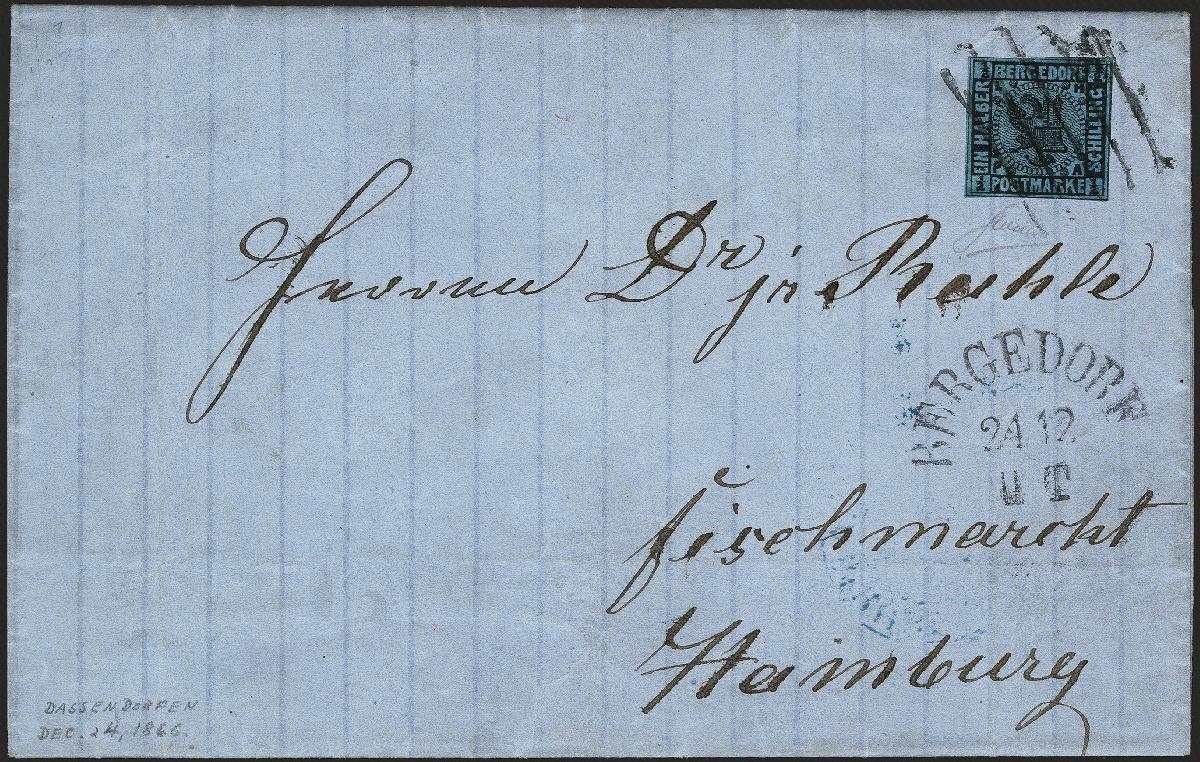 ½ BERGEDORF ½
EIN HALBER
SCHILLING
L H
P A
½ POSTMARKE ½
Herrn Dr jr Rahle
BERGEDORF
24 12
U T
fischmarcht
Hamburg
DASSENDORFEN
DEC. 24, 1866.